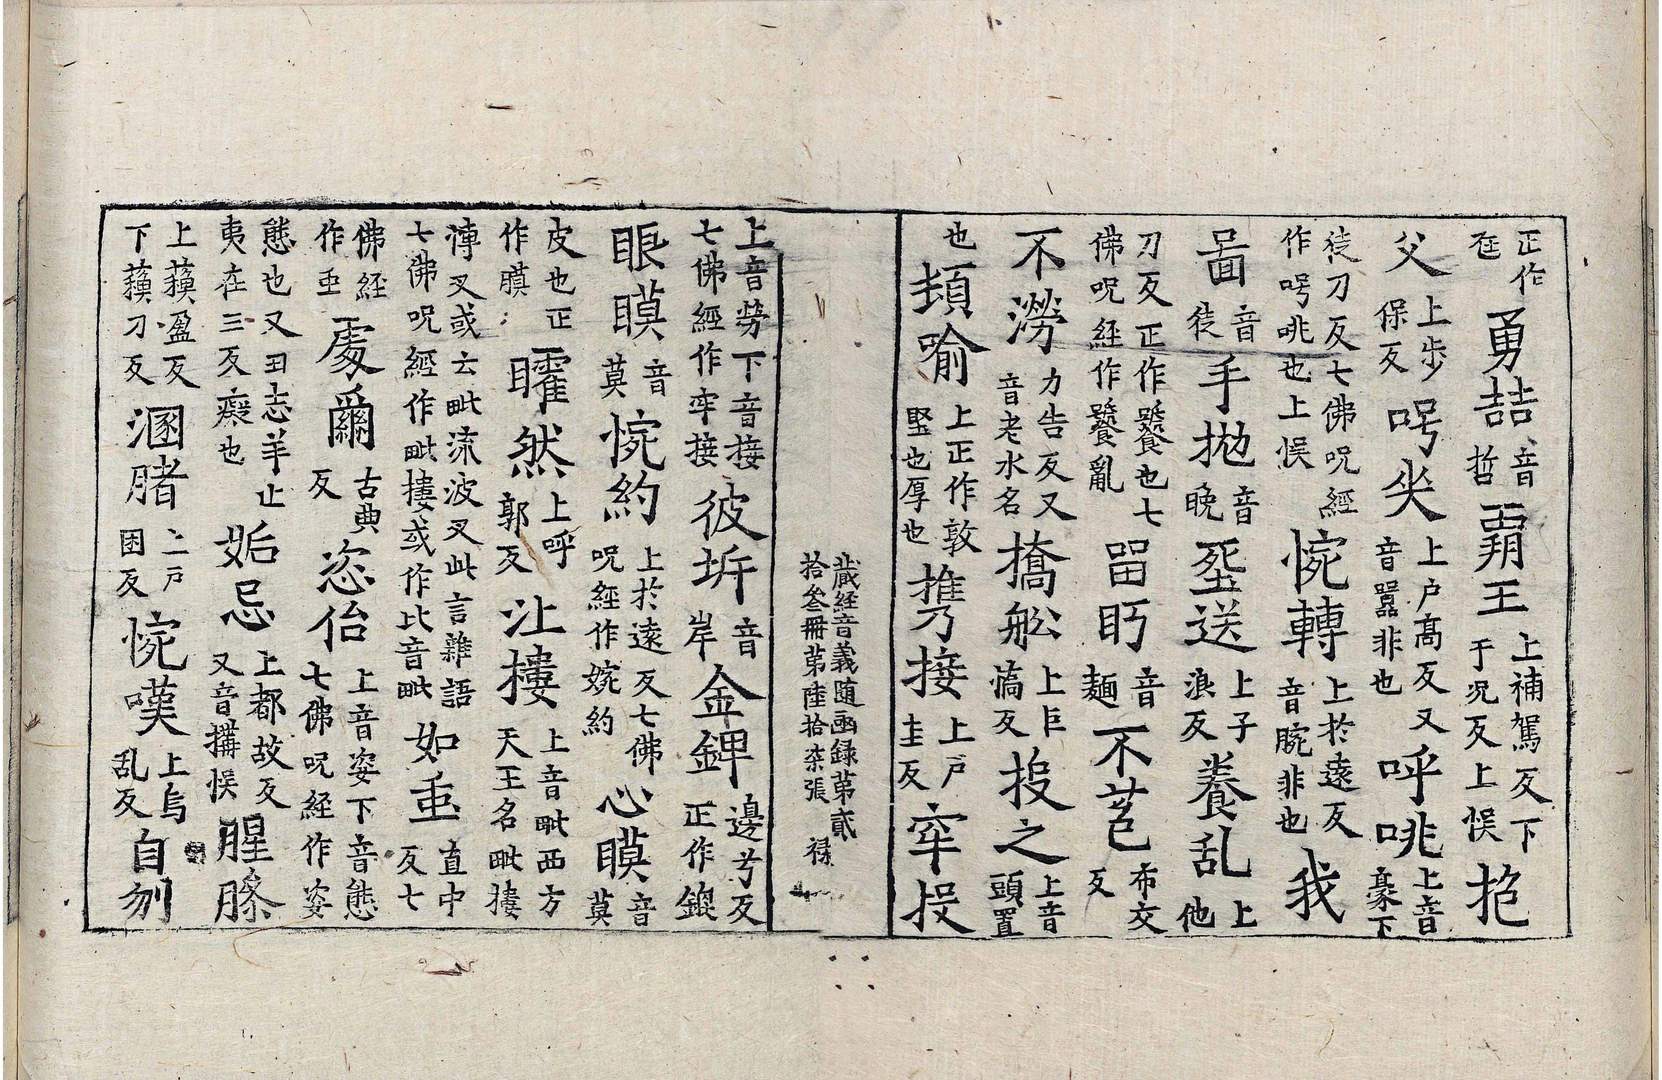 正作
㽵
勇喆音哲覇王上補駕反下于况反上悮抱
父上步保反呺𠱥上戶高反又音嚣非也呼咷上音豪下
徒刀反七佛呪經作呺咷也上悮惋轉上於遠反音腕非也我
啚音徒手拋音晚㙇送上子浪反養乱上他
刀反正作饕也七佛呪經作饕亂畱盯音麺不苞布交反
不澇力告反又音老水名撟舩上巨憍反投之上音頭置
也頪喻上正作敦堅也厚也攜接上戶圭反牢投
藏經音義随函録第貳
拾叁冊第陸拾柒張 禄
上音勞下音接七佛經作牢接彼坼音岸金錍邊兮反正作鎞
眼瞙音莫惋約上於遠反七佛呪經作婉約心瞙音莫
皮也正作膜矐然上呼郭反沘樓上音毗西方天王名毗樓
漙叉或云毗流波叉此言雜語七佛呪經作毗摟或作比音毗如𡍼直中反七
佛經作𡍼䖏爾古典反恣佁上音姿下音態七佛呪經作姿
態也又曰志羊止夷在三反癡也妬忌上都故反又音搆悮腥臊
上蘓盈反下蘓刀反溷䐗二戶困反惋嘆上烏乱反自刎